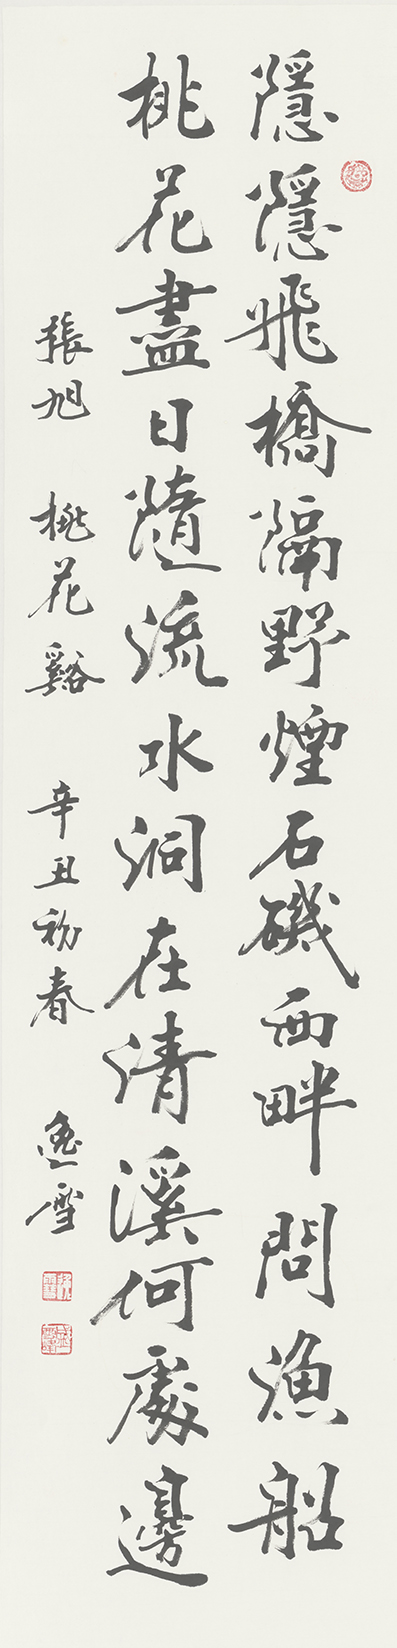 隱隱飛橋隔野煙石磯西畔問漁船
桃花盡日隨流水洞在清溪何處邊
張旭 桃花谿 辛丑初春 逸雪